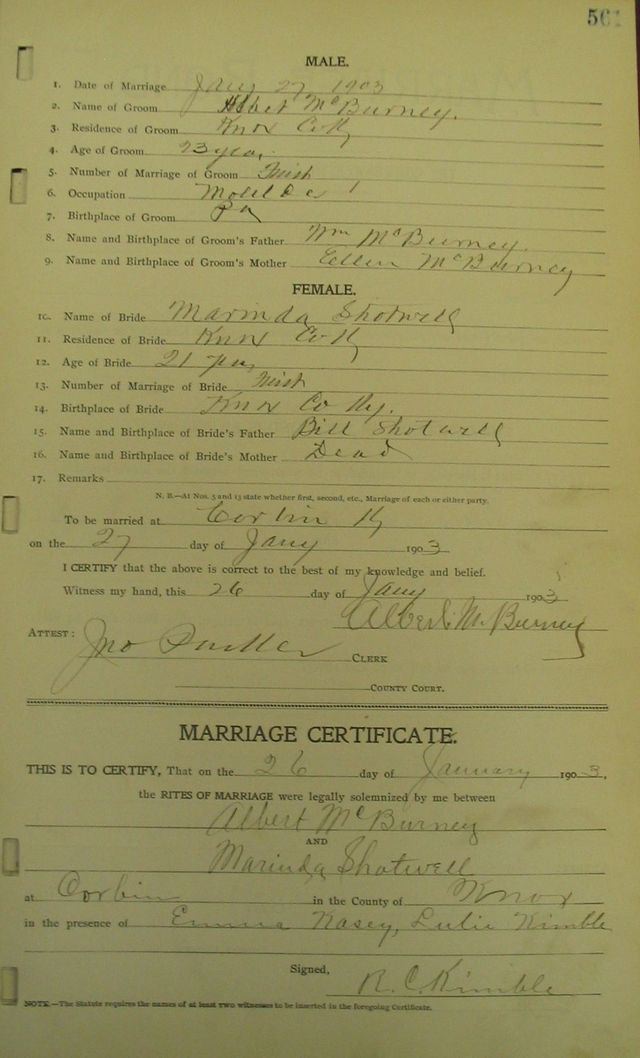 56
MALE.
1. Date of Marriage Jany 27 1903
2. Name of Groom Albert McBurney.
3. Residence of Groom Knox Co Ky
4. Age of Groom 23 years
5. Number of Marriage of Groom First
6. Occupation
7. Birthplace of Groom Pa
8. Name and Birthplace of Groom's Father Wm McBurney.
9. Name and Birthplace of Groom's Mother Ellen McBurney
FEMALE.
10. Name of Bride Marinda Shotwell
11. Residence of Bride Knox Co Ky
12. Age of Bride 21 yrs
13. Number of Marriage of Bride First
14. Birthplace of Bride Knox Co Ky.
15. Name and Birthplace of Bride's Father Bill Shotwell
16. Name and Birthplace of Bride's Mother Dead
17. Remarks
N. B.—At Nos. 5 and 13 state whether first, second, etc., Marriage of each or either party.
To be married at Corbin Ky
on the 27 day of Jany 1903
I CERTIFY that the above is correct to the best of my knowledge and belief.
Witness my hand, this 26 day of Jany 1903
Albert McBurney
ATTEST: Jno CLERK
COUNTY COURT.
MARRIAGE CERTIFICATE.
THIS IS TO CERTIFY, That on the 26 day of January 1903,
the RITES OF MARRIAGE were legally solemnized by me between
Albert McBurney
AND
Marinda Shotwell
at Corbin in the County of Knox
in the presence of Emma Kasey, Lulie Kimble
Signed,
R. C. Kimble
NOTE.—The Statute requires the names of at least two witnesses to be inserted in the foregoing Certificate.